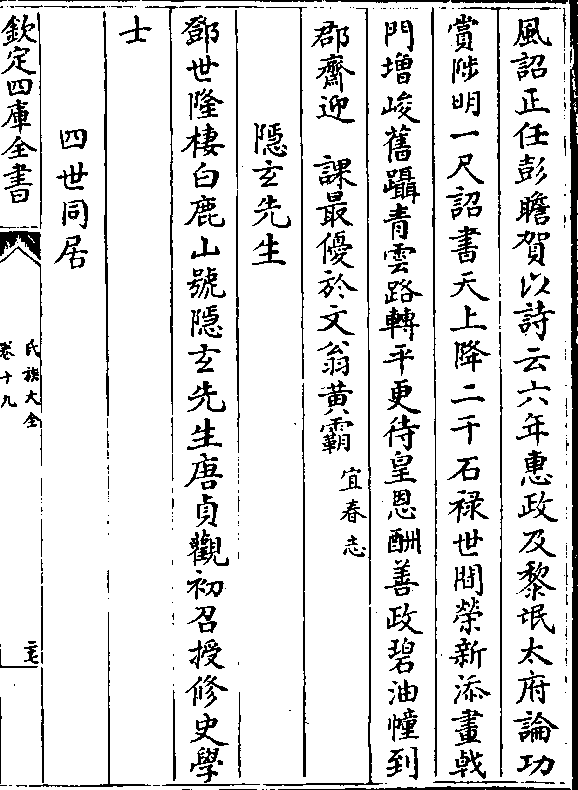 風詔正任彭瞻賀以詩云六年惠政及黎氓太府論功
賞陟明一尺詔書天上降二千石祿世間榮新添畫㦸
門增峻舊躡青雲路轉平更待皇恩酬善政碧油幢到
郡齋迎　課最優於文翁黃霸宜春志
隱玄先生
鄧世隆棲白鹿山號隱玄先生唐貞觀初召授修史學
士
四世同居
欽定四庫全書
氏族大全
卷十九